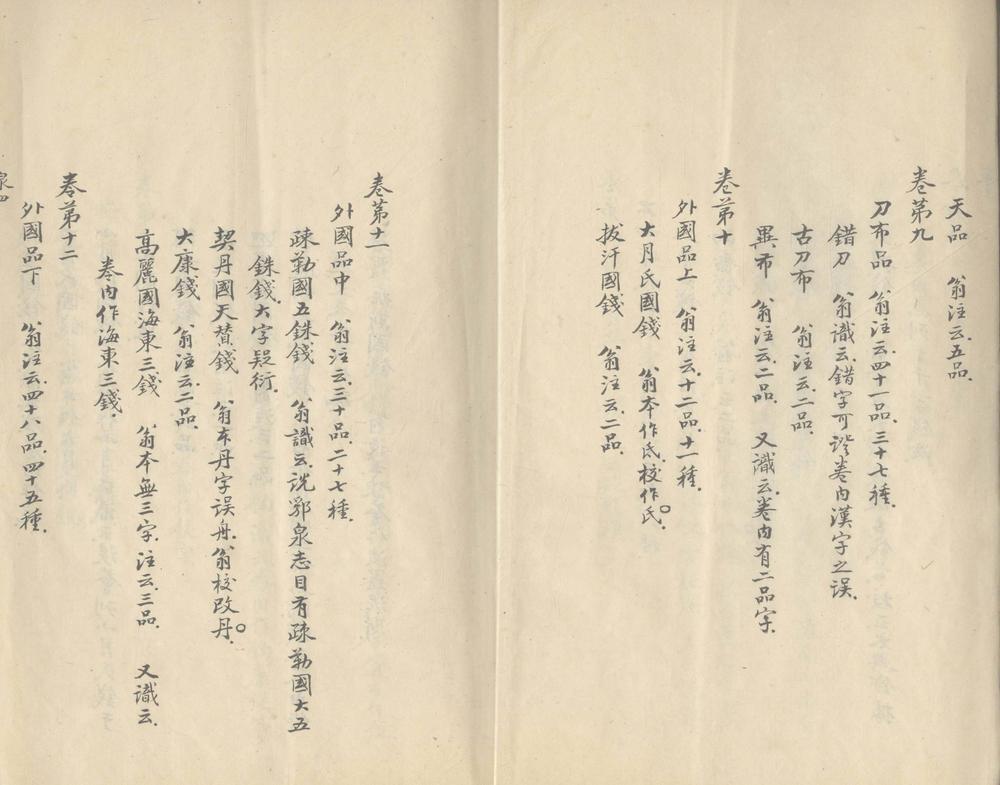 天品　翁注云五品.
卷第九
刀布品　翁注云四十一品.三十七種.
錯刀　翁識云.錯字可證卷内漢字之誤.
古刀布　翁注云二品.
異布　翁注云.二品.　又識云.卷内有二品字.
卷第十
外國品上　翁注云.十二品.十一種.
大月氏國錢　翁本作氐.校作氏.
拔汗國錢　翁注云.二品.
卷第十一
外國品中　翁注云.三十品.二十七種.
疎勒國五銖錢　翁識云.說郛泉志目有疎勒國大五
銖錢.大字疑衍.
契丹國天贊錢　翁本丹字誤舟.翁校改丹.
大康錢　翁注云.二品.
高麗國海東三錢　翁本無三字.注云.三品.　又識云.
卷内作海東三錢.
卷第十二
外國品下　翁注云.四十八品.四十五種.